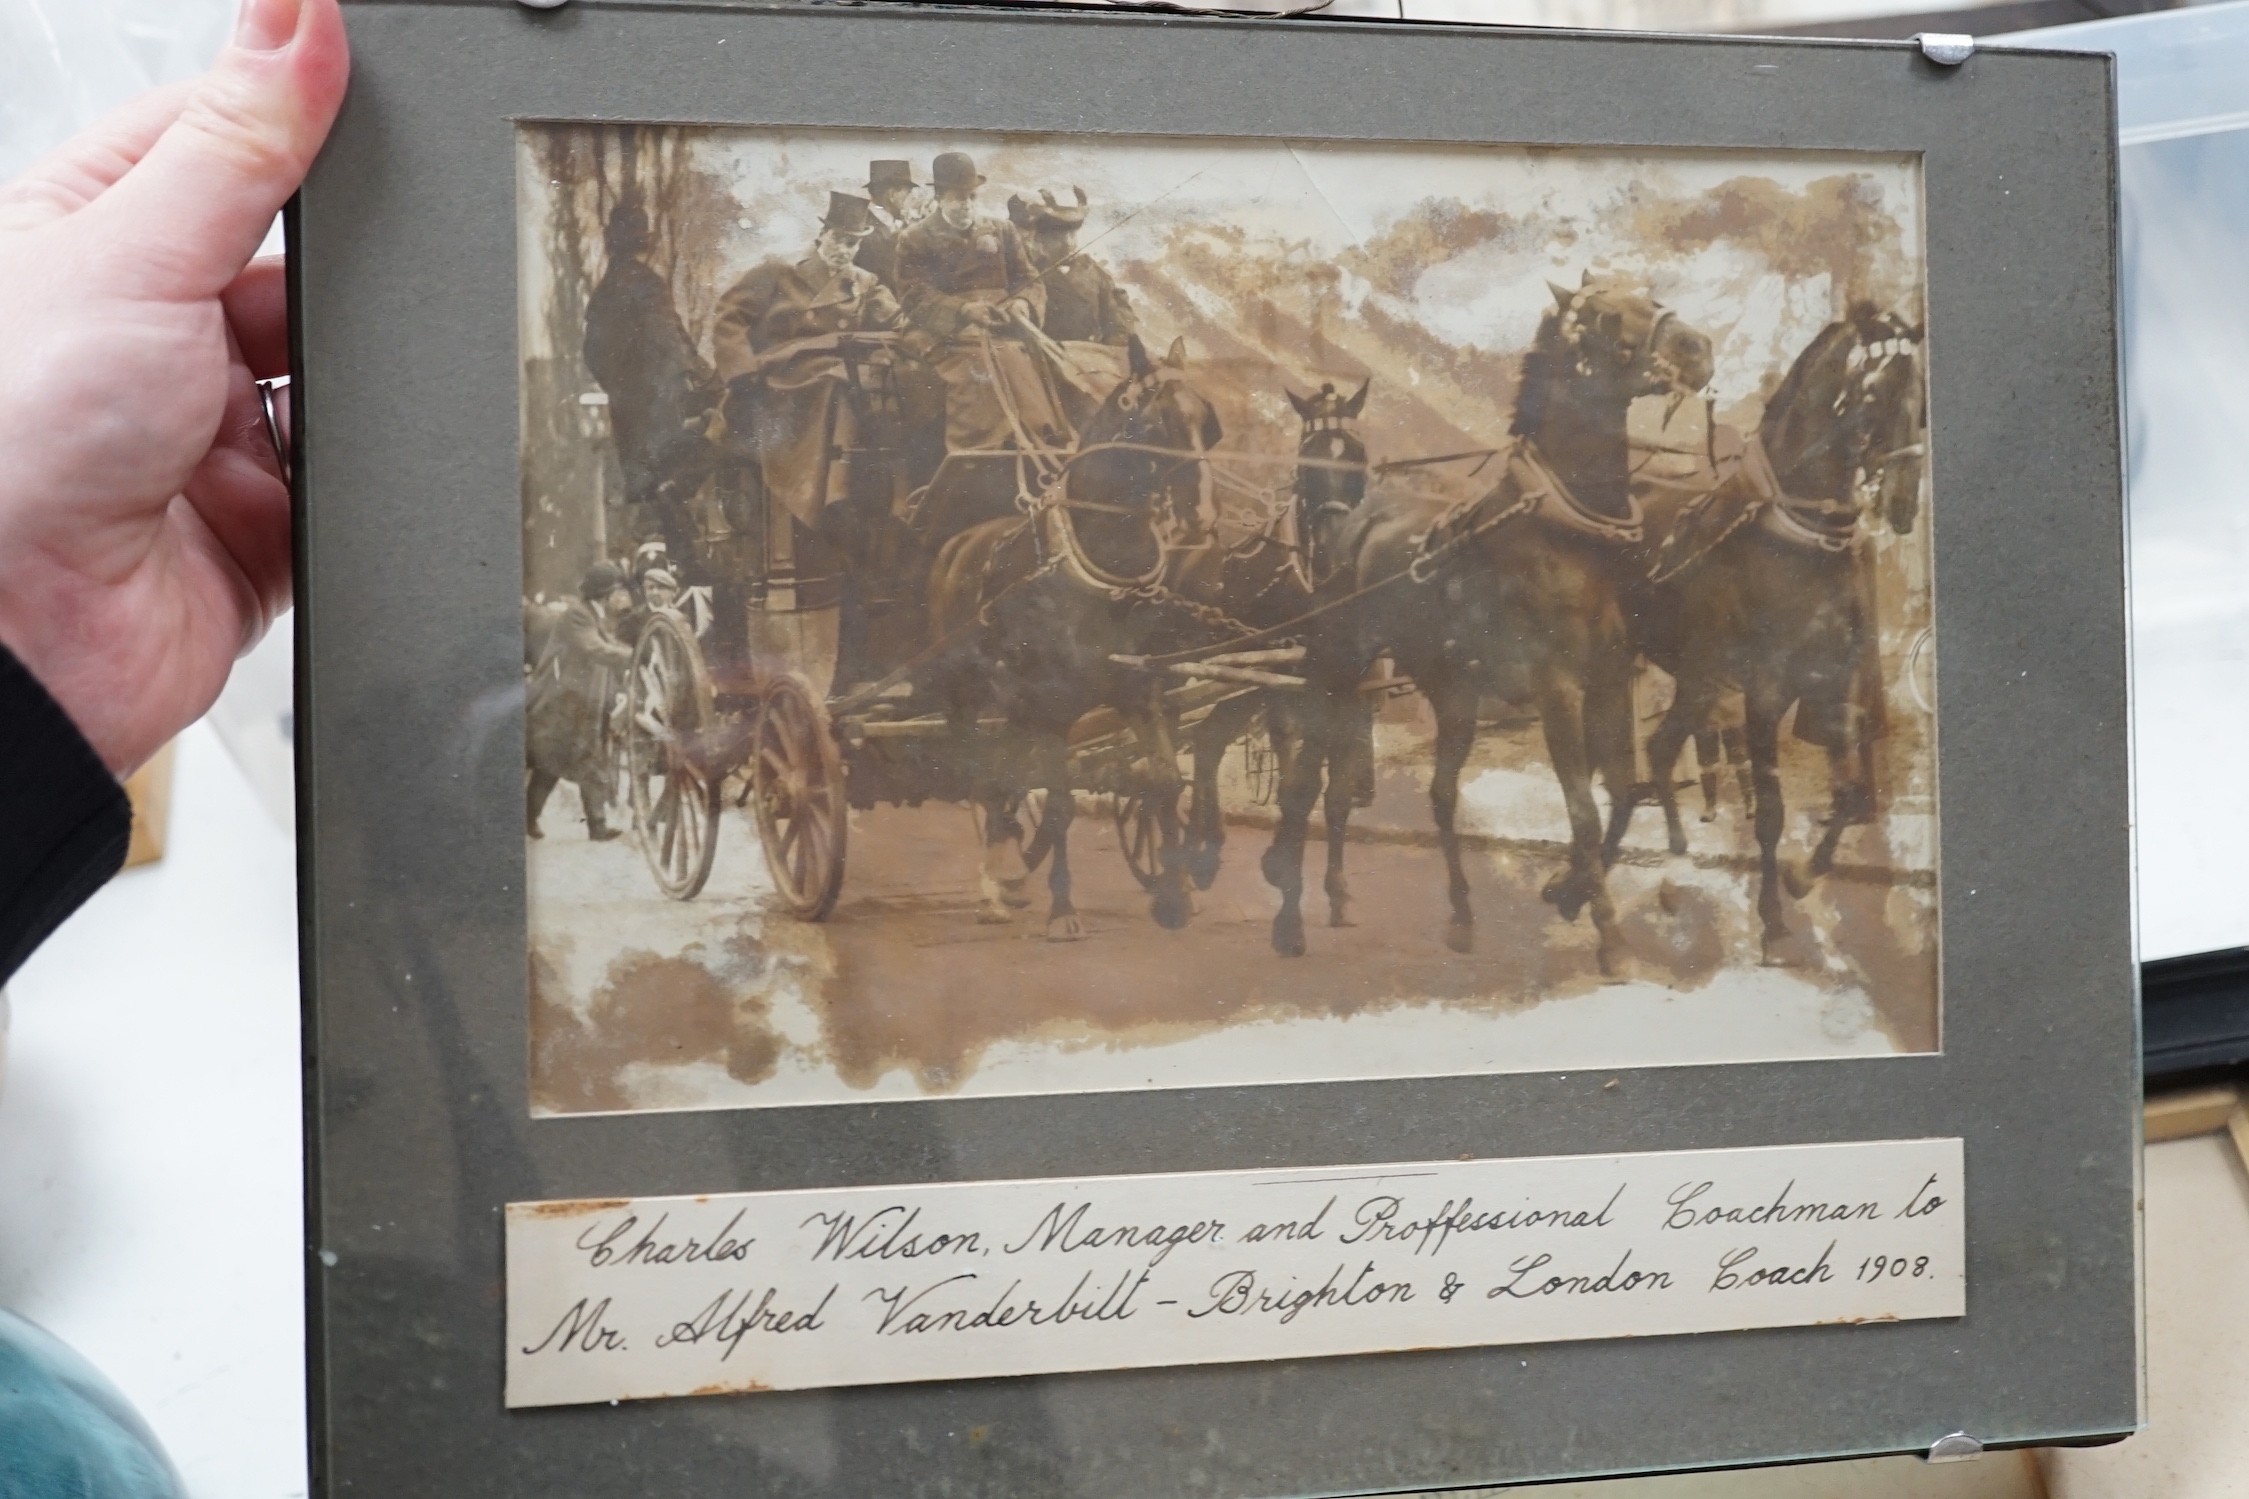 Charles Wilson, Manager and Proffessional Coachman to
Mr. Alfred Vanderbilt - Brighton & London Coach 1908.